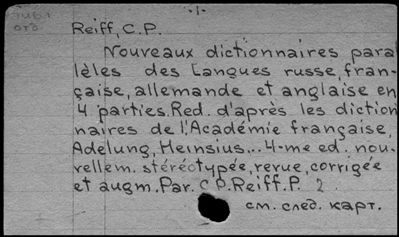 Reiff, C.P.
Nouveaux dictionnaires paral
lèles des Langues russe, fran-
çaise, allemande et anglaise en
4 parties. Red. d'après les diction
naires de l'Académie française,
Adelung, Heinsius... 4-me ed. nou-
vellem. stéréotypée, revue, corrigée
et augm. Par. C.P. Reiff. P. 2.
см. след. карт.